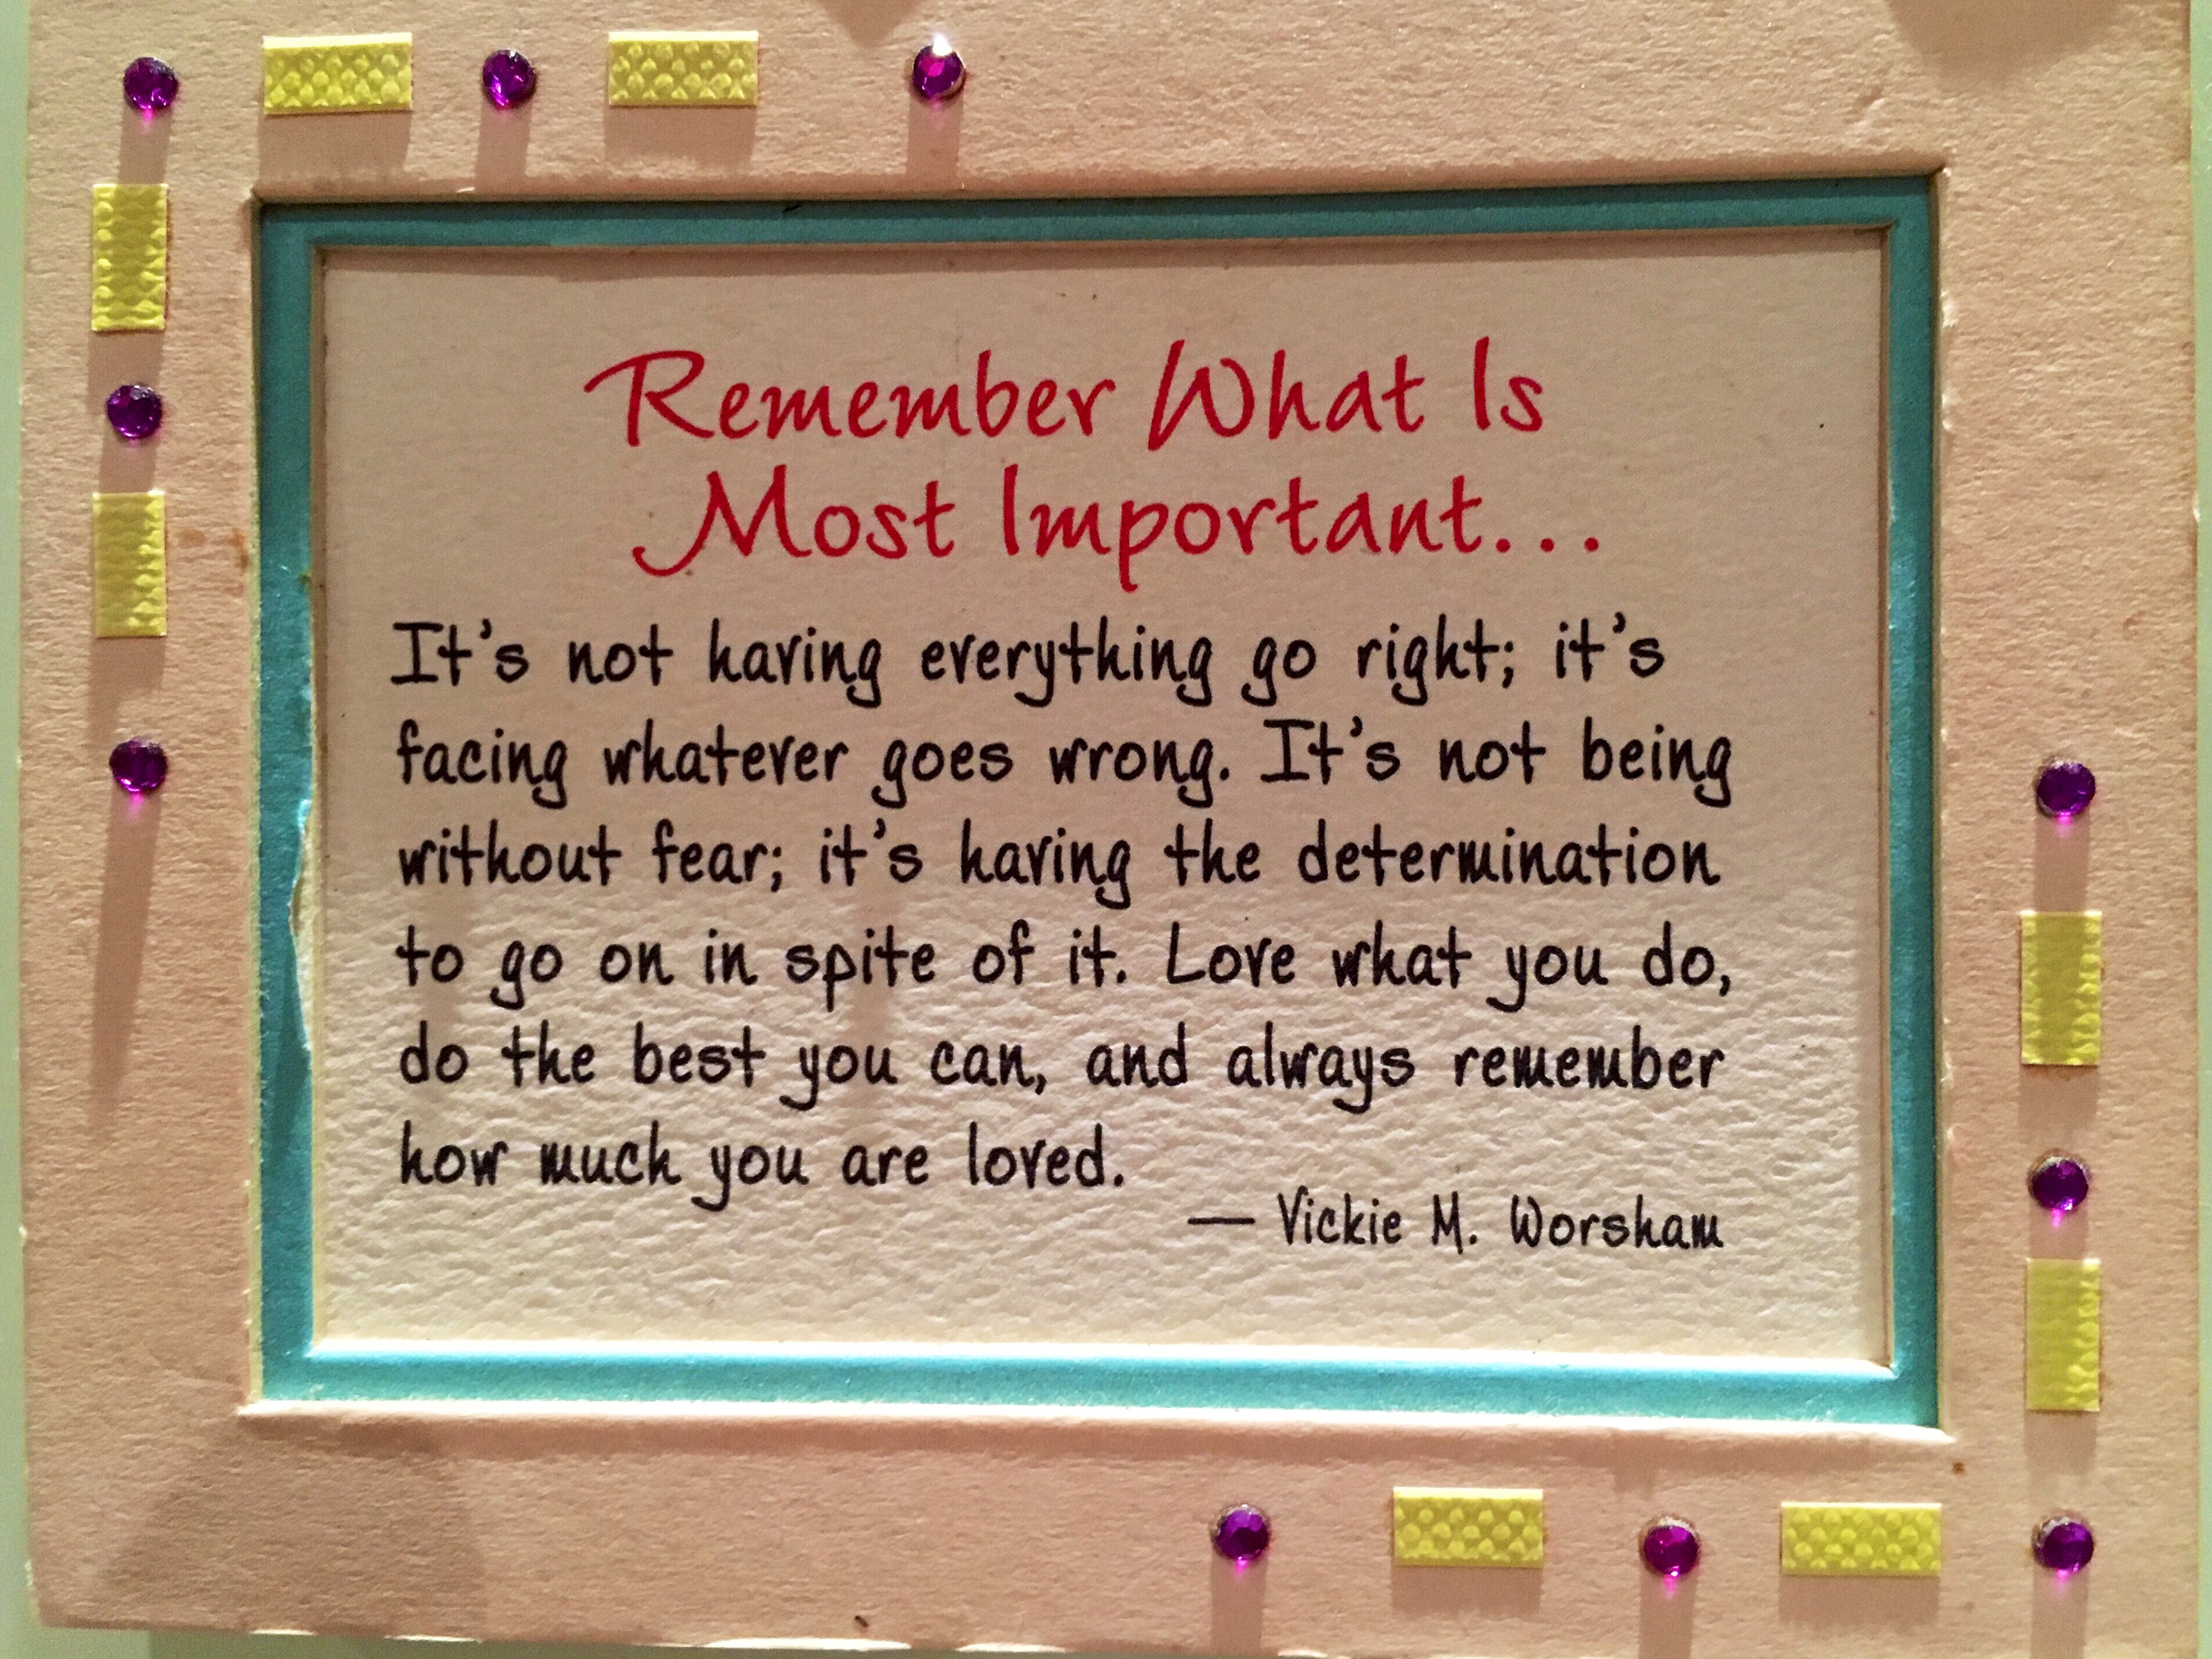 Remember What Is
Most Important...
It's not having everything go right; it's
facing whatever goes wrong. It's not being
without fear; it's having the determination
to go on in spite of it. Love what you do,
do the best you can, and always remember
how much you are loved.
— Vickie M. Worsham